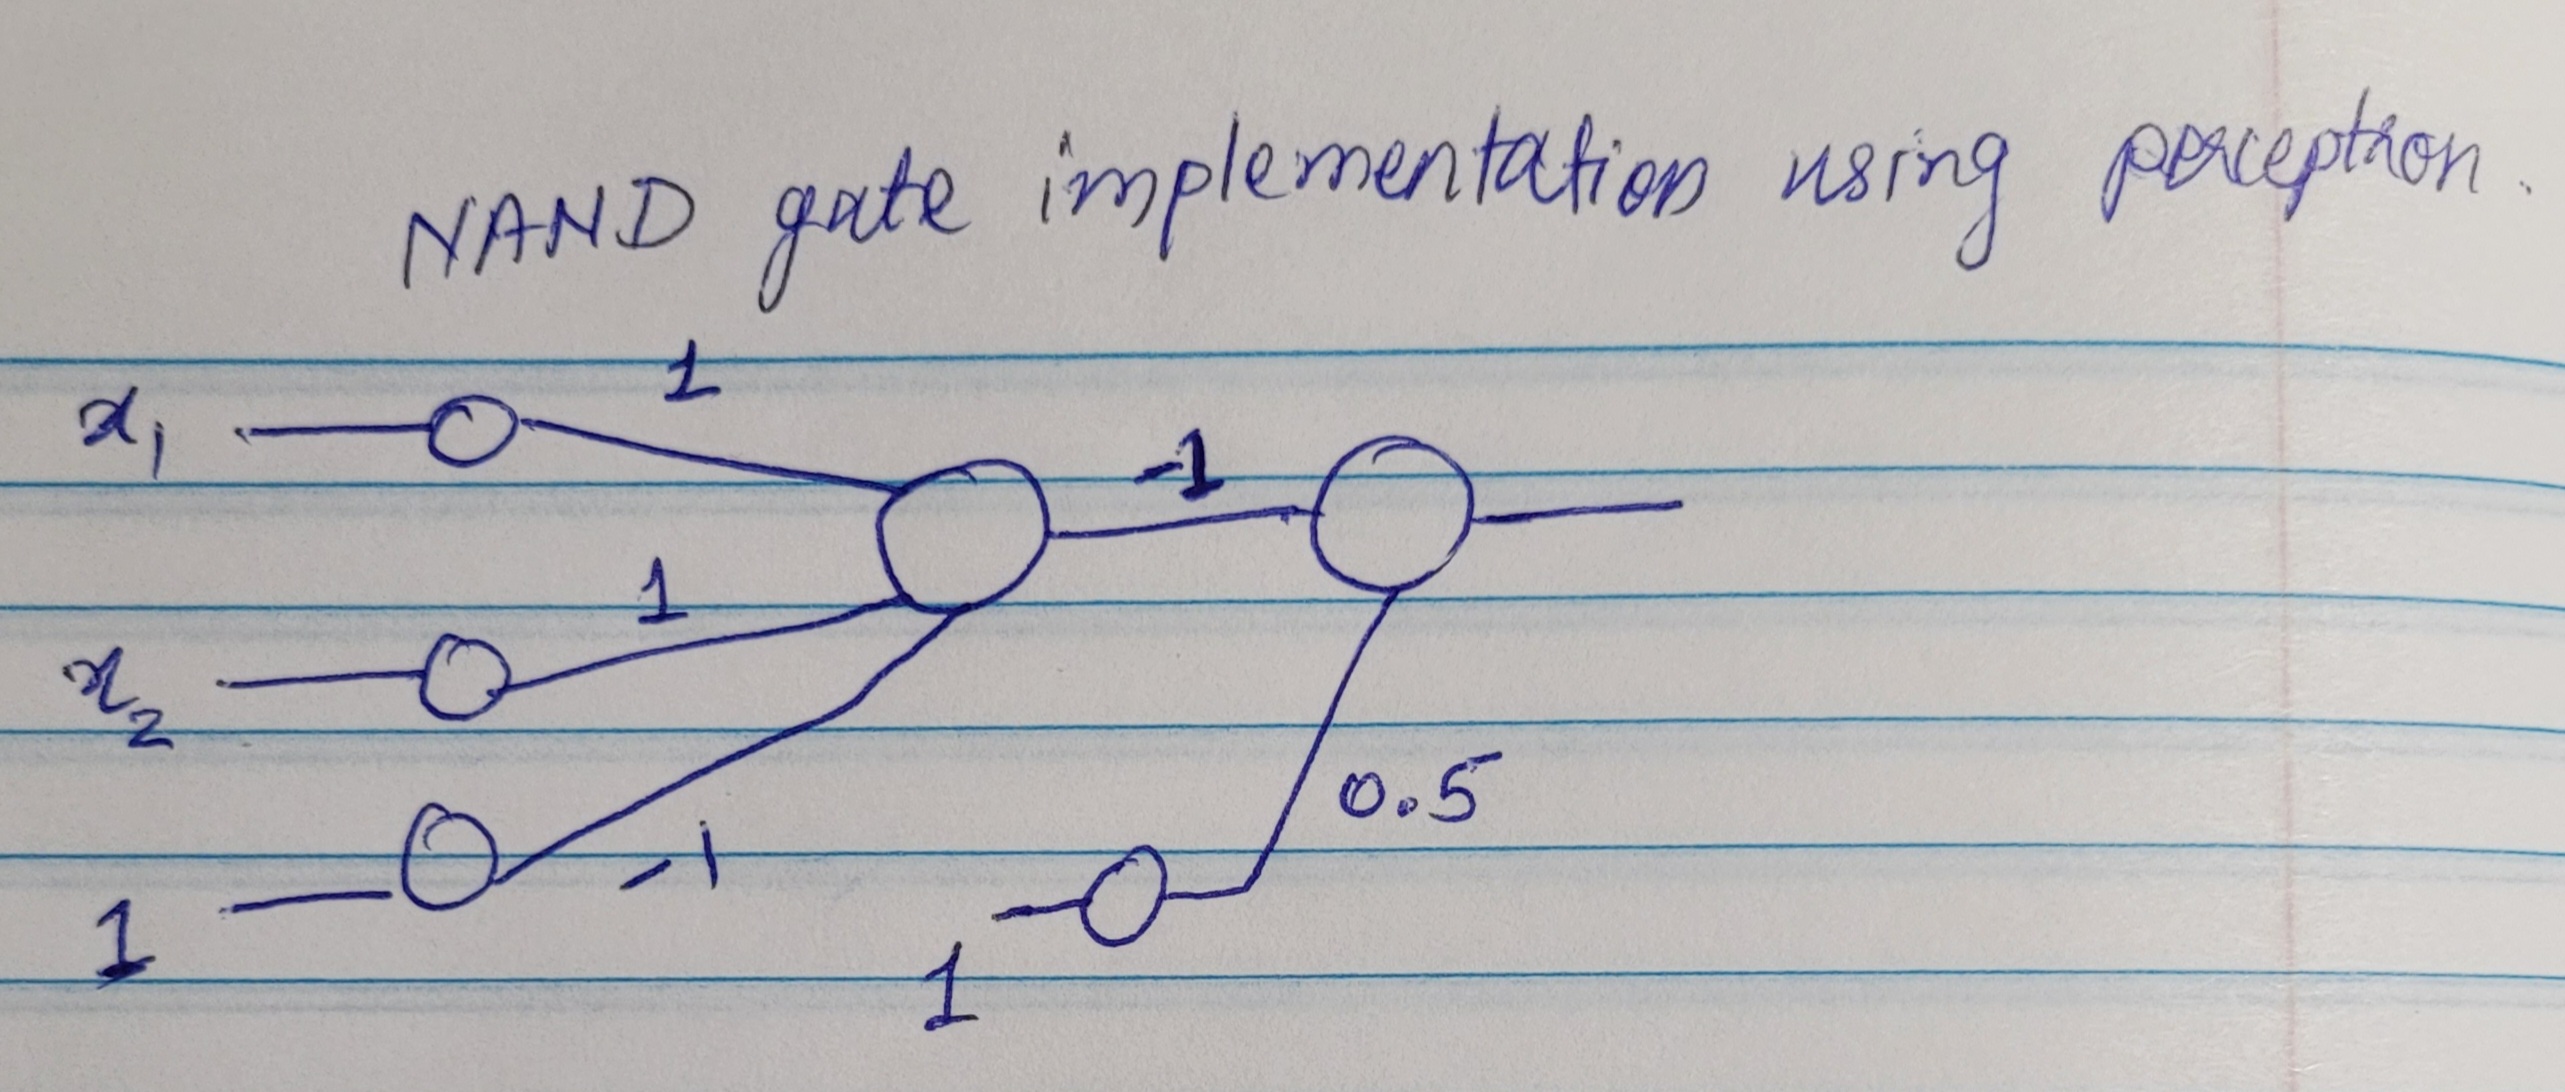 NAND gate implementation using perceptron.
x₁ 1
-1
x₂ 1
1 -1
0.5
1